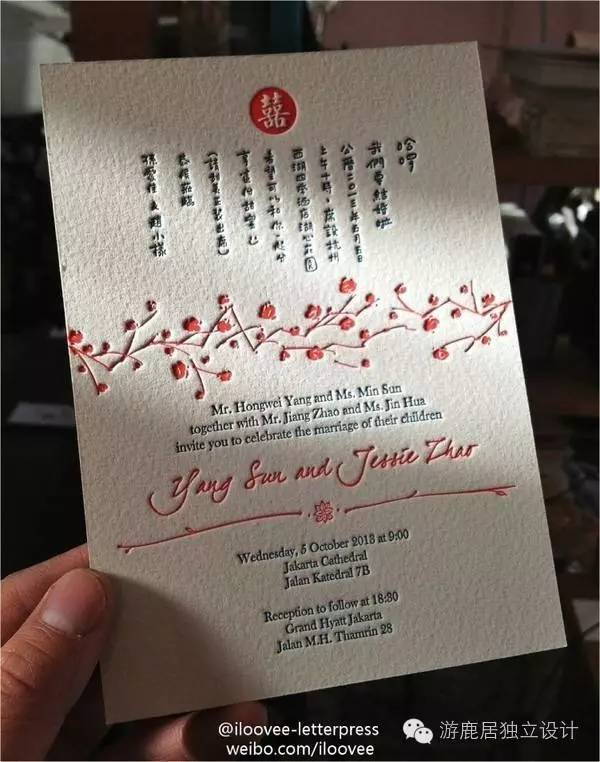 囍
哈囉
我們要結婚啦
公曆二〇一三年五月五日
上午十時，席設杭州
西湖四季酒店湖心
希望可以和你一起分
享這份甜蜜
（請著正裝出席）
恭候蒞臨
趙小樣
Mr. Hongwei Yang and Ms. Min Sun
together with Mr. Jiang Zhao and Ms. Jin Hua
invite you to celebrate the marriage of their children
Yang Sun and Jessie Zhao
Wednesday, 5 October 2013 at 9:00
Jakarta Cathedral
Jalan Katedral 7B
Reception to follow at 18:30
Grand Hyatt Jakarta
Jalan M.H. Thamrin 28
@iloovee-letterpress
weibo.com/iloovee
游鹿居独立设计